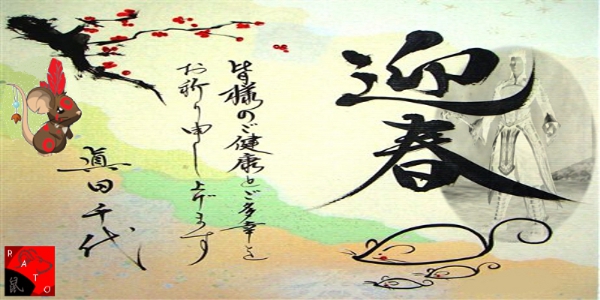 迎春
皆様のご健康とご多幸を
お祈り申し上げます
眞田千代
RATO
鼠